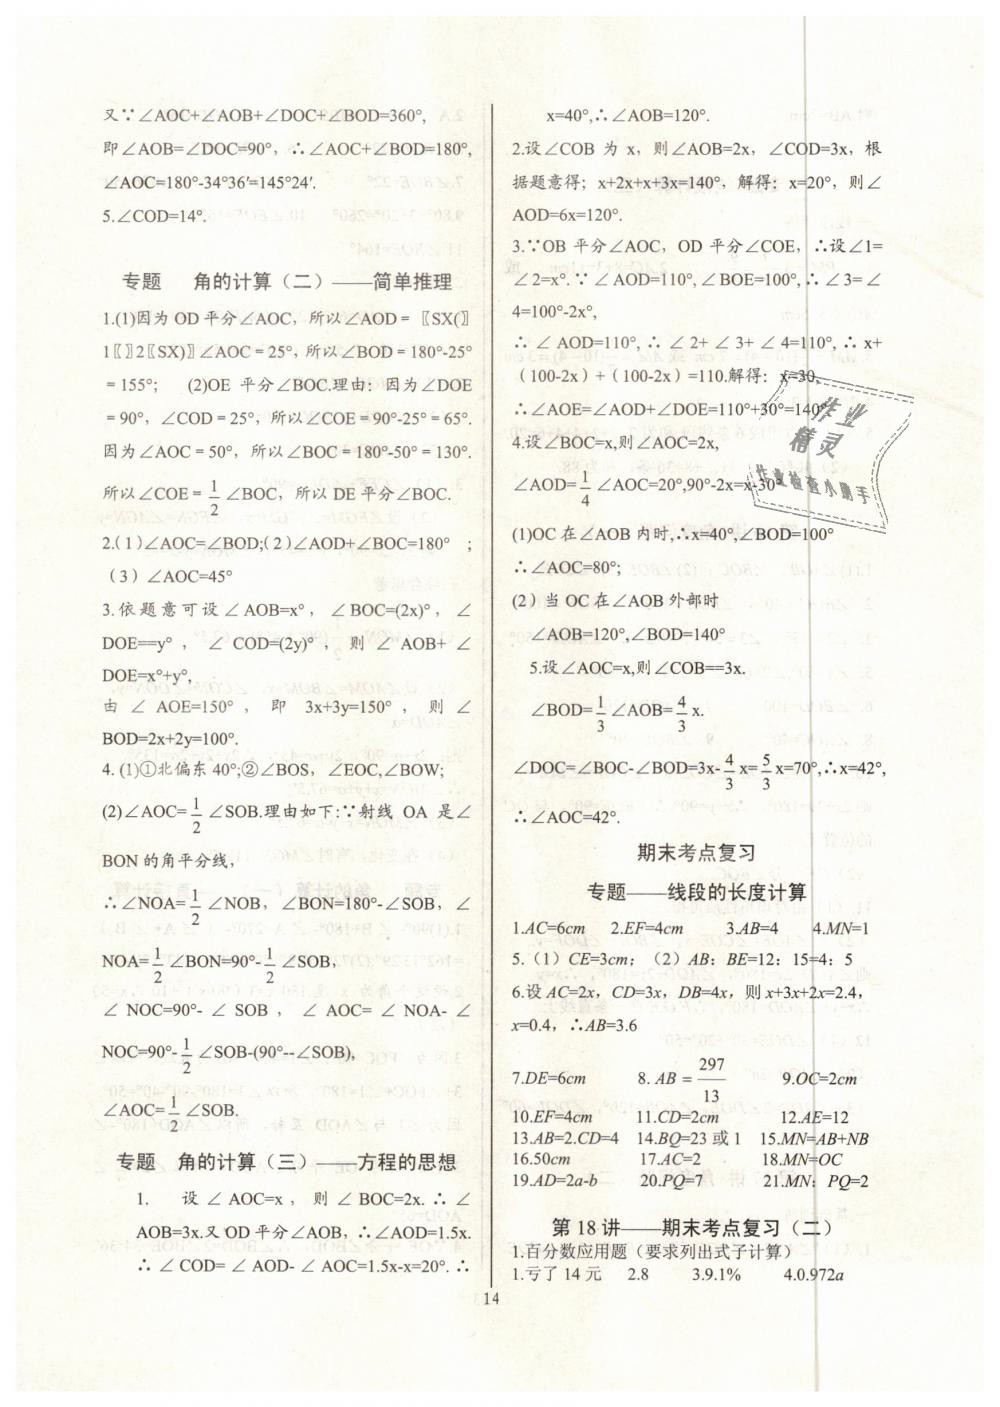 又∵∠AOC+∠AOB+∠DOC+∠BOD=360°,
即∠AOB=∠DOC=90°，∴∠AOC+∠BOD=180°,
∠AOC=180°-34°36′=145°24′.
5.∠COD=14°.
专题　角的计算（二）——简单推理
1.(1)因为 OD 平分∠AOC，所以∠AOD =〖SX(〗
1〖〗2〖SX)〗∠AOC = 25°, 所以∠BOD = 180°-25°
= 155°;　(2)OE 平分∠BOC.理由：因为∠DOE
= 90°，∠COD = 25°，所以∠COE = 90°-25° = 65°.
因为∠AOC = 50°，所以∠BOC = 180°-50° = 130°.
所以∠COE = 1/2 ∠BOC，所以 DE 平分∠BOC.
2.(1) ∠AOC=∠BOD;(2)∠AOD+∠BOC=180° ;
（3）∠AOC=45°
3.依题意可设∠AOB=x°，∠BOC=(2x)°，∠
DOE==y°，∠COD=(2y)°，则∠AOB+∠
DOE=x°+y°,
由∠AOE=150°，即 3x+3y=150°，则∠
BOD=2x+2y=100°.
4. (1)①北偏东 40°;②∠BOS，∠EOC,∠BOW;
(2)∠AOC= 1/2 ∠SOB.理由如下:∵射线 OA 是∠
BON 的角平分线，
∴∠NOA= 1/2 ∠NOB，∠BON=180°-∠SOB，∠
NOA= 1/2 ∠BON=90°- 1/2 ∠SOB，
∠NOC=90°-∠SOB，∠AOC=∠NOA-∠
NOC=90°- 1/2 ∠SOB-(90°--∠SOB),
∠AOC= 1/2 ∠SOB.
专题　角的计算（三）——方程的思想
1.　设∠AOC=x，则∠BOC=2x.∴∠
AOB=3x.又 OD 平分∠AOB，∴∠AOD=1.5x.
∴∠COD=∠AOD-∠AOC=1.5x-x=20°. ∴
x=40°,∴∠AOB=120°.
2.设∠COB 为 x，则∠AOB=2x，∠COD=3x，根
据题意得；x+2x+x+3x=140°，解得：x=20°，则∠
AOD=6x=120°.
3.∵OB 平分∠AOC，OD 平分∠COE，∴设∠1=
∠2=x°.∵∠AOD=110°,∠BOE=100°,∴∠3=∠
4=100°-2x°,
∴∠AOD=110°,∴∠2+∠3+∠4=110°,∴x+
（100-2x）+（100-2x）=110.解得：x=30,
∴∠AOE=∠AOD+∠DOE=110°+30°=140°
4.设∠BOC=x,则∠AOC=2x,
∠AOD= 1/4 ∠AOC=20°,90°-2x=x-30°
(1)OC 在∠AOB 内时,∴x=40°,∠BOD=100°
∴∠AOC=80°;
(2) 当 OC 在∠AOB 外部时
∠AOB=120°,∠BOD=140°
5.设∠AOC=x,则∠COB==3x.
∠BOD= 1/3 ∠AOB= 4/3 x.
∠DOC=∠BOC-∠BOD=3x- 4/3 x= 5/3 x=70°,∴x=42°,
∴∠AOC=42°.
期末考点复习
专题——线段的长度计算
1.AC=6cm　2.EF=4cm　3.AB=4　4.MN=1
5.（1）CE=3cm；（2）AB：BE=12：15=4：5
6.设 AC=2x，CD=3x，DB=4x，则 x+3x+2x=2.4，
x=0.4，∴AB=3.6
7.DE=6cm　8. AB = 297/13　9.OC=2cm
10.EF=4cm　11.CD=2cm　12.AE=12
13.AB=2.CD=4　14.BQ=23 或 1　15.MN=AB+NB
16.50cm　17.AC=2　18.MN=OC
19.AD=2a-b　20.PQ=7　21.MN：PQ=2
第 18 讲——期末考点复习（二）
1.百分数应用题（要求列出式子计算）
1.亏了 14 元　2.8　3.9.1%　4.0.972a
14
作业
精灵
作业检查小助手